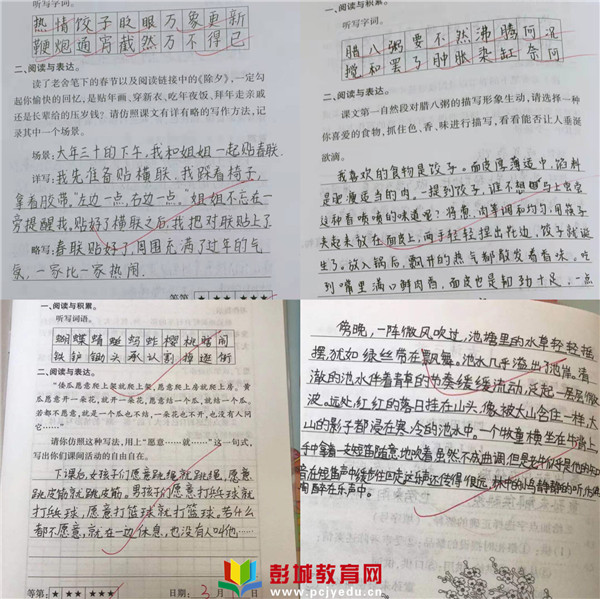 听写字词。
热情饺子眨眼万象更新
鞭炮通宵截然万不得已
二、阅读与表达。
读了老舍笔下的春节以及阅读链接中的《除夕》,一定勾
起你愉快的回忆,是贴年画、穿新衣、吃年夜饭、拜年走亲戚
还是长辈给的压岁钱?请仿照课文有详有略的写作方法,记
录其中一个场景。
场景:大年三十的下午,我和姐姐一起贴春联.
详写:我先准备贴横联,我踩着椅子,
拿着胶带,“左边一点,右边一点。”姐姐不忘在一
旁提醒我,贴好了横联之后,我把对联贴上了
略写:春联贴好了,周围充满了过年的气
氛,一家比一家热闹.
等第
听写字词。
腊八粥要不然沸腾何况
搅和罢了肿胀染缸奈何
二、阅读与表达。
课文第一自然段对腊八粥的描写形象生动,请选择一种
你喜爱的食物,抓住色、香、味进行描写,看看能否让人垂涎
欲滴。
我喜欢的食物是饺子。面皮厚薄适中,馅料
是肥瘦适当的肉。一提到饺子,谁不想
这种香喷喷的味道呢?将葱,肉等调和均匀,用筷子
夹起来放在面皮上,两手轻轻捏出花边,饺子就诞
生了。放入锅后,飘升的热气都散发着香味。吃
到嘴里满口鲜肉香,面皮也是韧劲十足,一点
一、阅读与积累。
听写词语。
蝴蝶蜻蜓蚂蚱樱桃瞎闹
铁铲锄头承认割掉逛街
二、阅读与表达。
“倭瓜愿意爬上架就爬上架,愿意爬上房就爬上房。黄
瓜愿意开一朵花,就开一朵花,愿意结一个瓜,就结一个瓜。
若都不愿意,就是一个瓜也不结,一朵花也不开,也没有人问
它……”
请你仿照这种写法,用上“愿意……就……”这一句式,
写出你们课间活动的自由自在。
下课后,女孩子们愿意跳绳就跳绳,愿意
跳皮筋就跳皮筋。男孩子们愿意打乒乓球就
打乒乓球,愿意打篮球就打篮球。若什么
都不愿意,就在一边休息,也没有人叫他……
等第:
日期:3月
傍晚,一阵微风吹过,池塘里的水草轻轻摇
摆,犹如绿丝带在飘舞。池水几乎溢出了池岸。清
澈的池水伴着青草的缓缓流动,泛起一层层微
波。远处,红红的落日挂在山头,像被大山含住一样,大
山的影子都浸在寒冷的池水中。一个牧童横坐在牛背上,
手中拿着一支短笛随意地吹着虽然不成曲调,但是
音在短笛声中缓步往回走这乐声还传得很远,林中的小鸟静静的听,
陶醉在乐声中。
彭城教育网
www.pcjyedu.cn